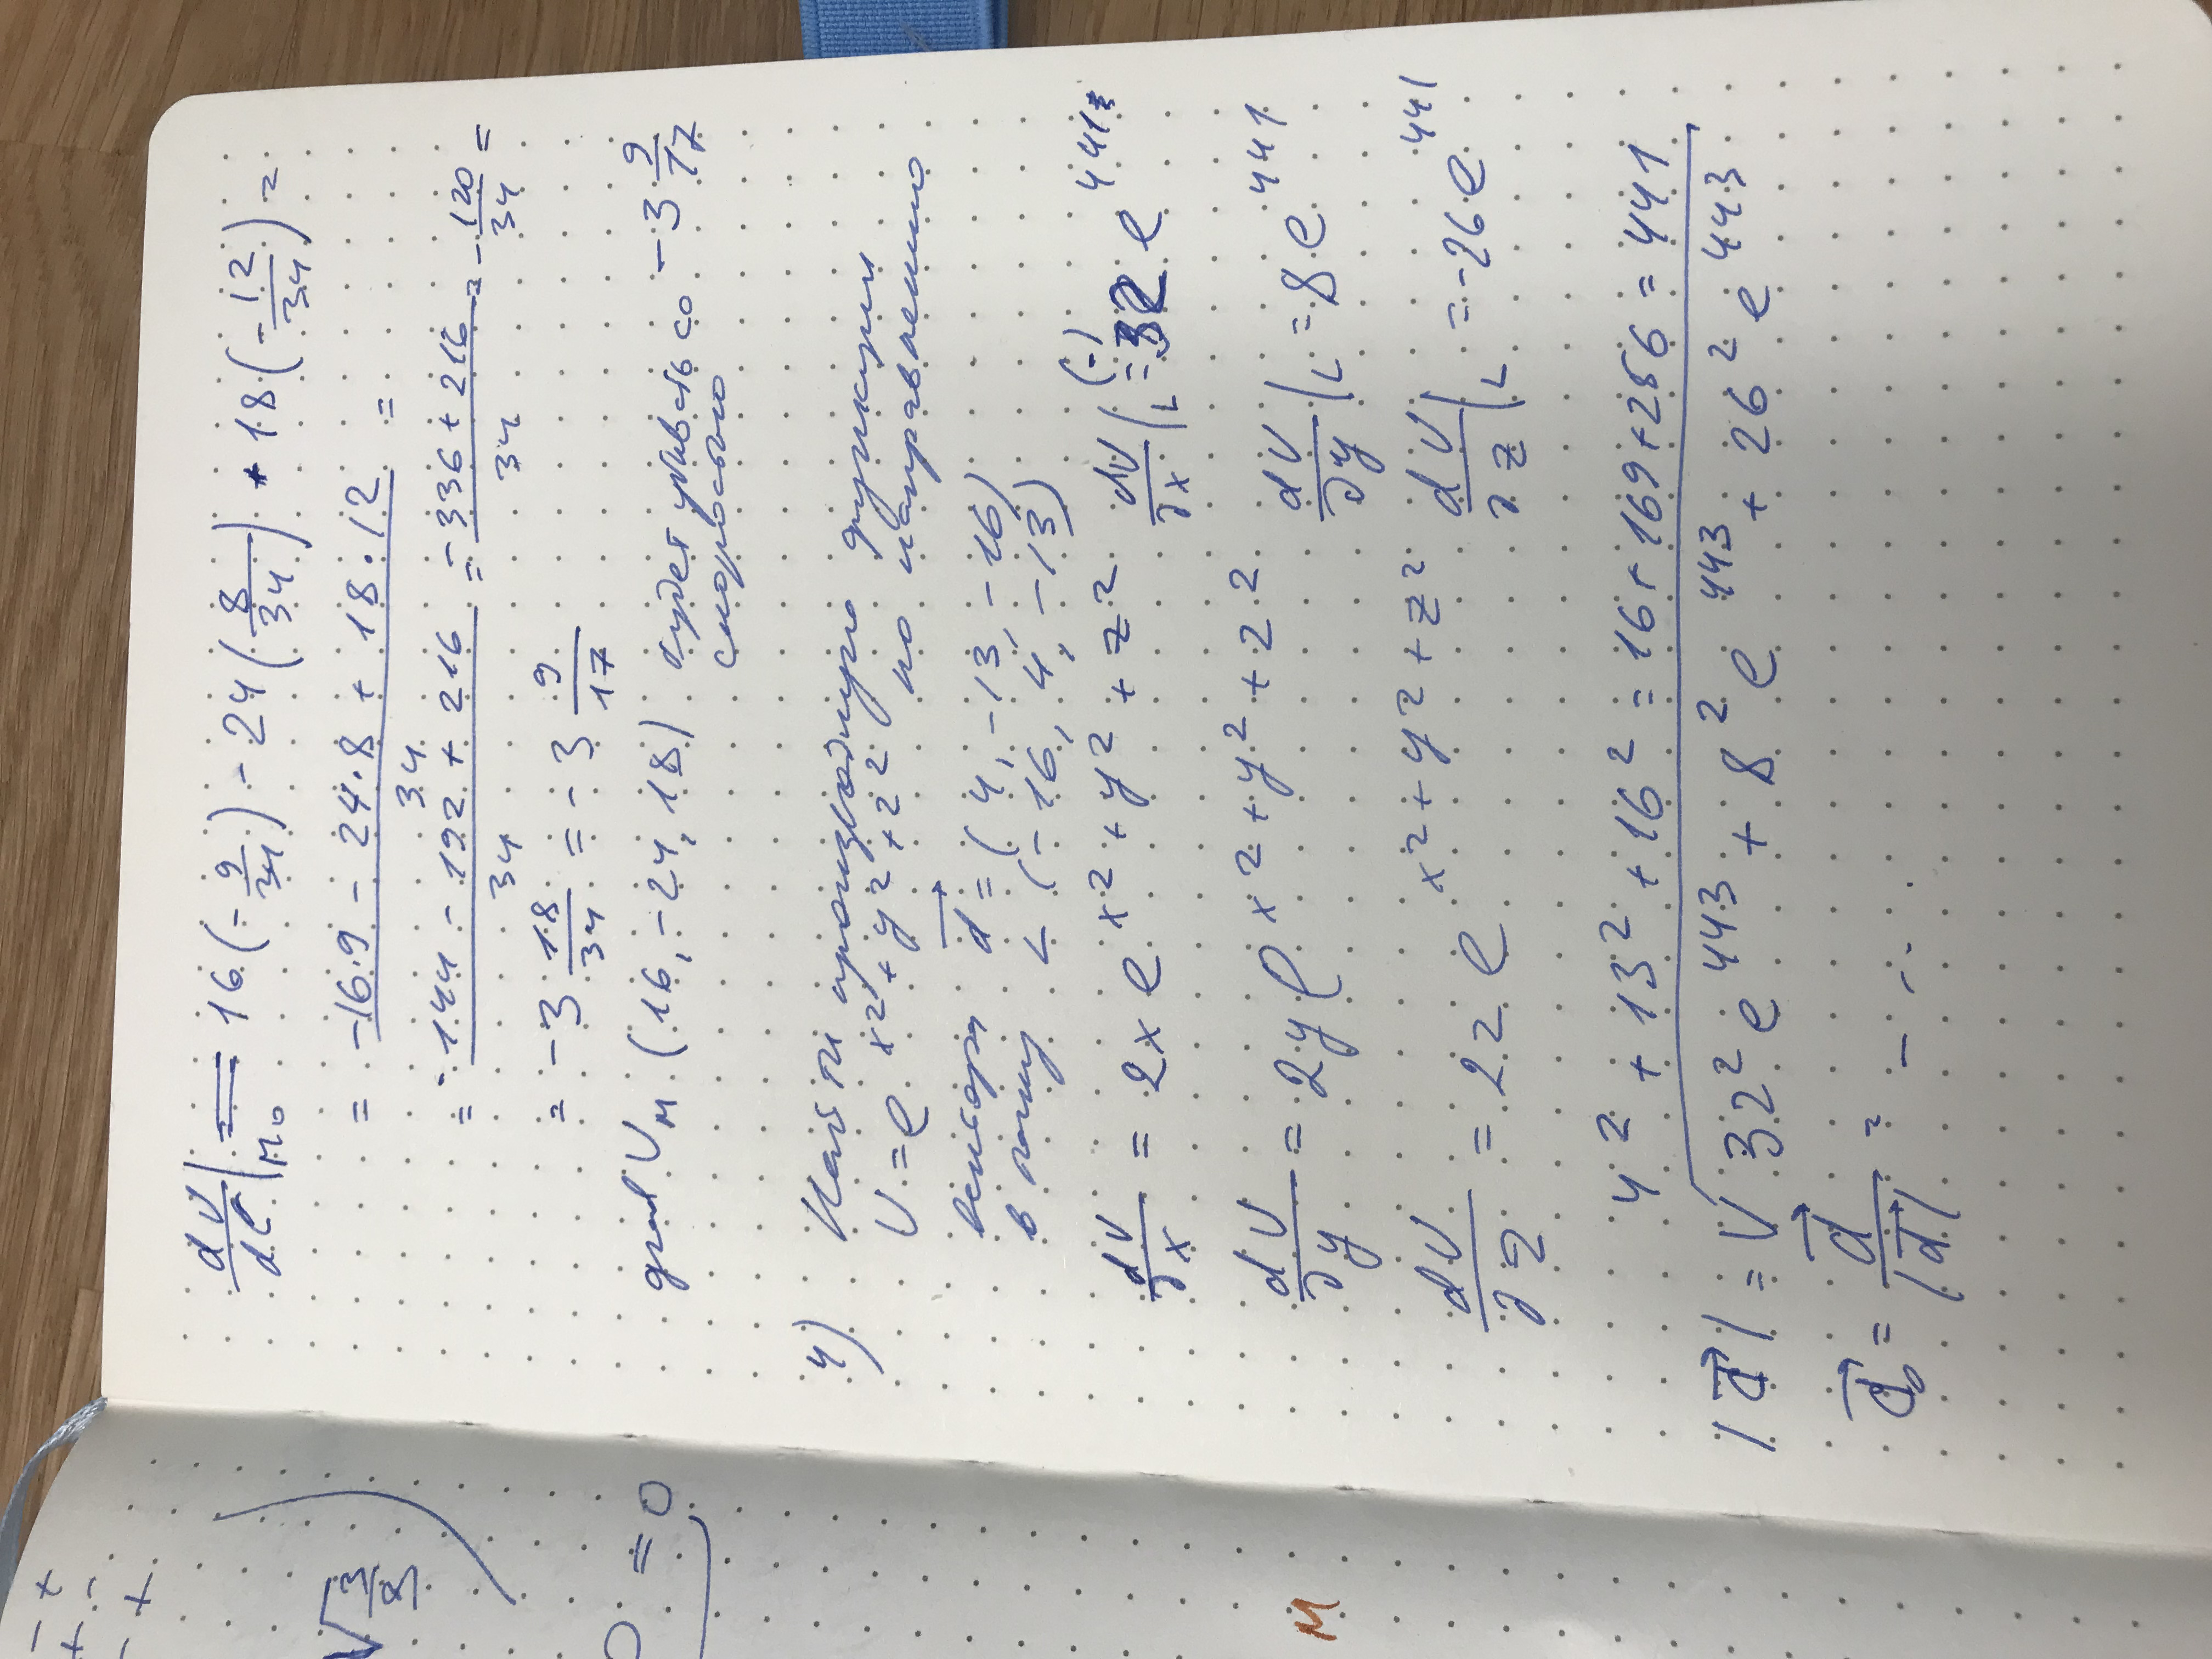 dU/dl |M₀ = 16(-9/34) - 24(8/34) + 18(-12/34) =
= (-16·9 - 24·8 + 18·12)/34 =
= (-144 - 192 + 216)/34 = (-336 + 216)/34 = -120/34 =
= -3 18/34 = -3 9/17
grad U_M (16, -24, 18) будет убивать со -3 9/17
скоростью
4) Найти производную функции
U = e^(x² + y² + z²) по направлению
вектора d⃗ = (4, -13, -16)
в точку L (-16, 4, -13)
dU/∂x = 2x e^(x² + y² + z²) dU/∂x |L = (-) 32 e^441
dU/∂y = 2y e^(x² + y² + z²) dU/∂y |L = 8 e^441
dU/∂z = 2z e^(x² + y² + z²) dU/∂z |L = -26 e^441
4² + 13² + 16² = 16 + 169 + 256 = 441
|d⃗| = √(32² e^443 + 8² e^443 + 26² e^443)
d⃗₀ = d⃗/|d⃗| = - - .
M
= 0